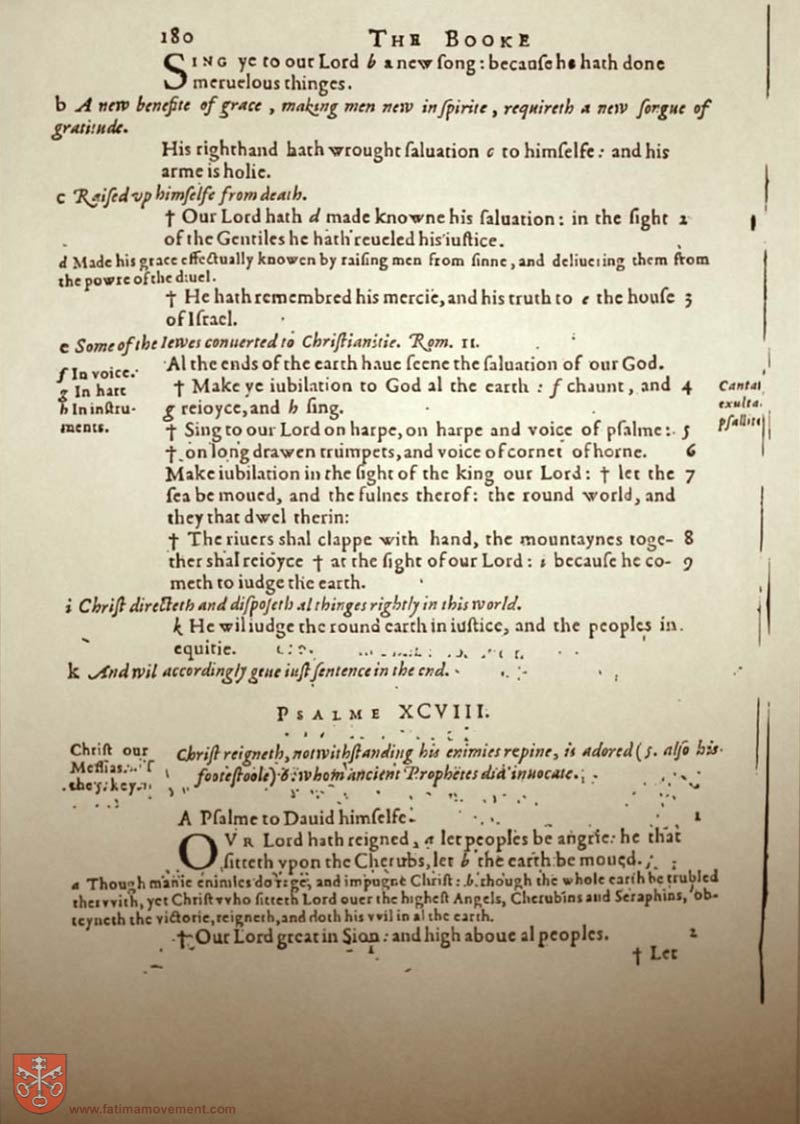 180 THE BOOKE
SING ye to our Lord b a new ſong: becauſe he hath done
meruelous thinges.
b A new benefite of grace, making men new in ſpirite, requireth a new ſongue of
gratitude.
His righthand hath wrought ſaluation c to himſelfe: and his
arme is holie.
c Raiſed vp himſelfe from death.
† Our Lord hath d made knowne his ſaluation: in the ſight 2
of the Gentiles he hath reueled his iuſtice.
d Made his grace effectually knowen by raiſing men from ſinne, and deliuering them from
the powre of the diuel.
† He hath remembred his mercie, and his truth to e the houſe 3
of Iſrael.
e Some of the Iewes conuerted to Chriſtianitie. Rom. 11.
Al the ends of the earth haue ſeene the ſaluation of our God.
f In voice.
g In hart
h In inſtru-
ments.
† Make ye iubilation to God al the earth: f chaunt, and 4
g reioyce, and h ſing.
Cantat
exulta.
pſallite
† Sing to our Lord on harpe, on harpe and voice of pſalme: 5
† on long drawen trumpets, and voice of cornet of horne. 6
Make iubilation in the ſight of the king our Lord: † let the 7
ſea be moued, and the fulnes therof: the round world, and
they that dwel therin:
† The riuers shal clappe with hand, the mountaynes toge- 8
ther shal reioyce † at the ſight of our Lord: i becauſe he co- 9
meth to iudge the earth.
i Chriſt directeth and diſpoſeth al thinges rightly in this world.
k He wil iudge the round earth in iuſtice, and the peoples in
equitie.
k And wil accordingly geue iuſt ſentence in the end.
PSALME XCVIII.
Chriſt our
Meſſias.
the 7. key.
Chriſt reigneth, notwithſtanding his enimies repine, is adored (5. alſo his
footeſtoole) 6. whom ancient Prophetes did inuocate.
A Pſalme to Dauid himſelfe. 1
OVR Lord hath reigned, a let peoples be angrie: he that
ſitteth vpon the Cherubs, let b the earth be moued.
a Though manie enimies do rige, and impugne Chriſt: b though the whole earth be trubled
therwith, yet Chriſt who ſitteth Lord ouer the higheſt Angels, Cherubins and Seraphins, ob-
teyneth the victorie, reigneth, and doth his wil in al the earth.
† Our Lord great in Sion: and high aboue al peoples. 2
† Let
www.fatimamovement.com